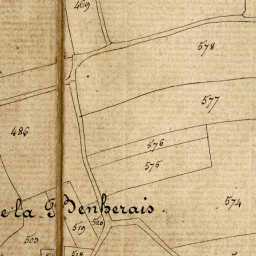 469
578
577
486
576
575
574
e la Benherais
519
520
503
518